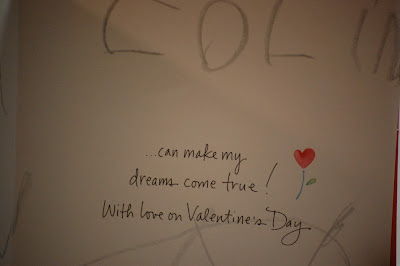 COLIN
...can make my
dreams come true!
With love on Valentine's Day.